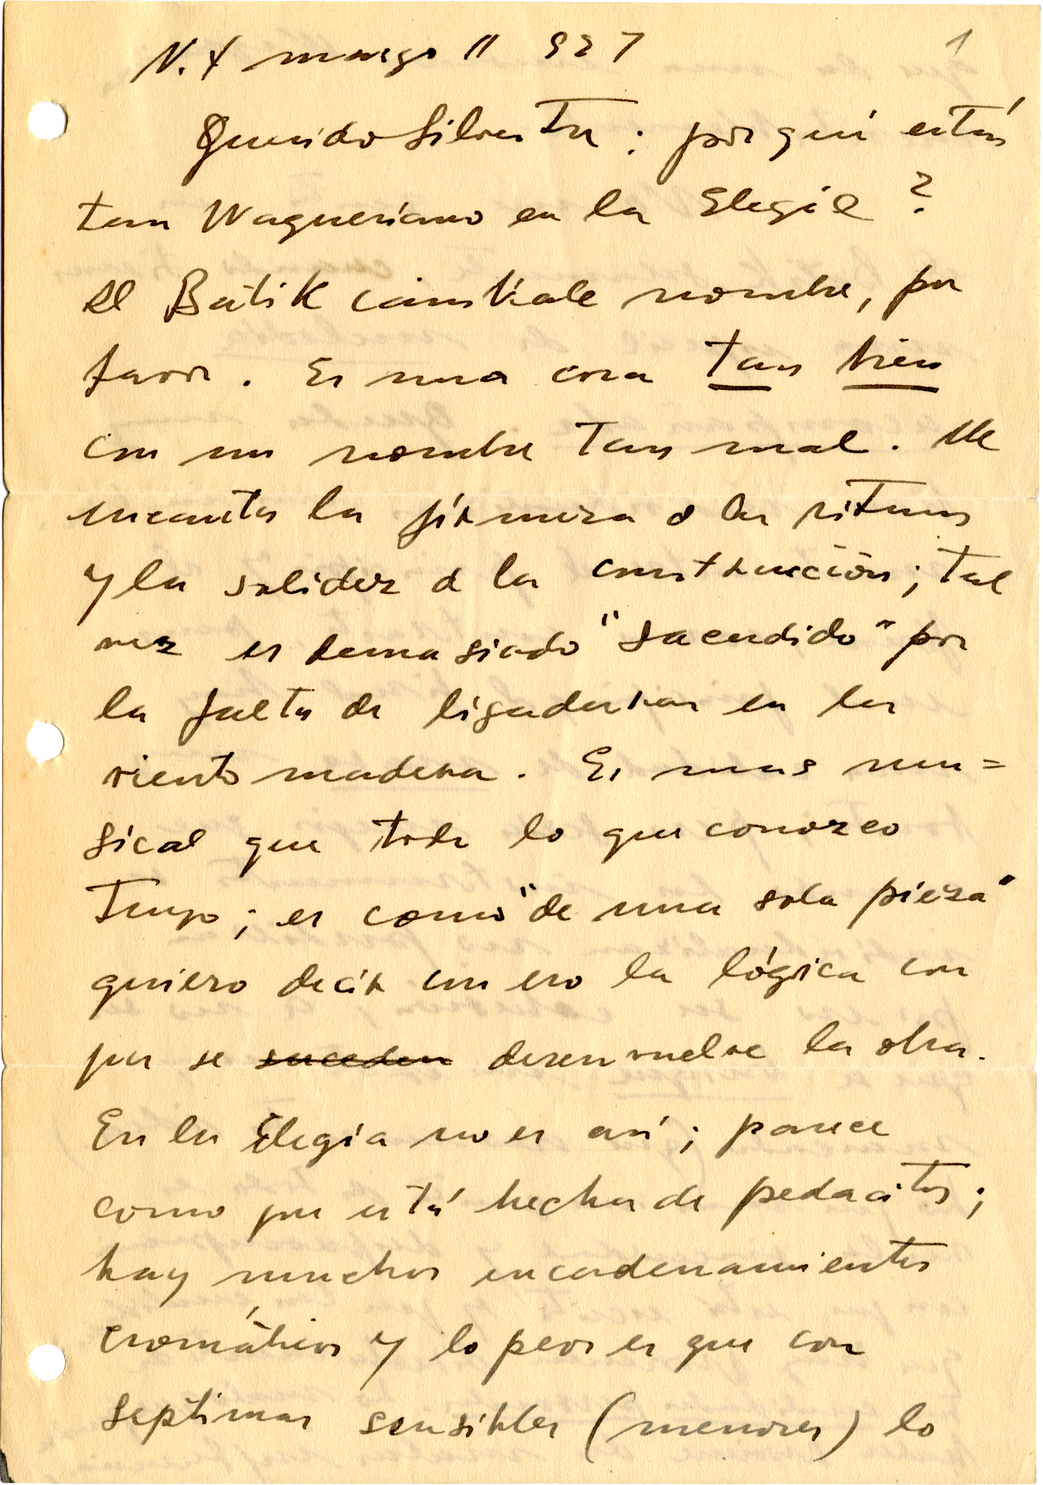 N.Y marzo 11 927 1
Querido Silvestre: por qué estás
tan Wagneriano en la Elegía?
el Batik cambiale nombre, por
favor. Es una cosa tan bien
con un nombre tan mal. Me
encanta la firmeza d los ritmos
y la solidez d la construcción; tal
vez es demasiado "sacudido" por
la falta de ligaduras en los
viento madera. Es mas mu=
sical que todo lo que conozco
tuyo; es como "de una sola pieza"
quiero decir con eso la lógica con
que se suceden desenvuelve la obra.
En la Elegía no es así; parece
como que está hecha de pedacitos;
hay muchos encadenamientos
cromáticos y lo peor es que con
septimas sensibles (menores) lo